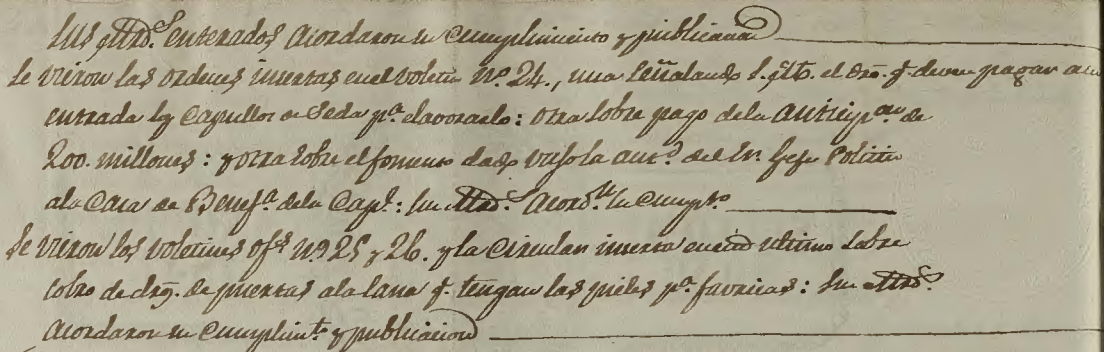 Sus mrds. enterados acordaron su cumplimiento y publicacion
Se vieron las ordenes insertas en el voletin nº. 24., una señalando el dro. q. deven pagar a su
entrada los Capullos de Seda pª. elavorarlo: otra sobre pago dela anticipon. de
200. millones: y otra sobre el fomento dado vajo la autd. del Sr. Gefe Politico
ala Casa de Benefª. dela Capl.: Sus mrds. acordn. su cumpto.
Se vieron los voletines ofs. nº 25 y 26. y la Circular inserta en este ultimo sobre
cobro de dros. de puertas ala lana q. tengan las pieles pª. favricas: Sus mrds.
acordaron su cumplimto. y publicacion